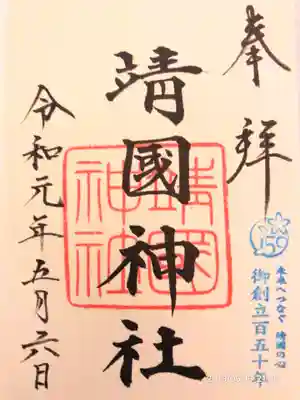 奉拝
靖國神社
靖國
神社
令和元年五月六日
150
未来へつなぐ 靖國の心
御創立百五十年